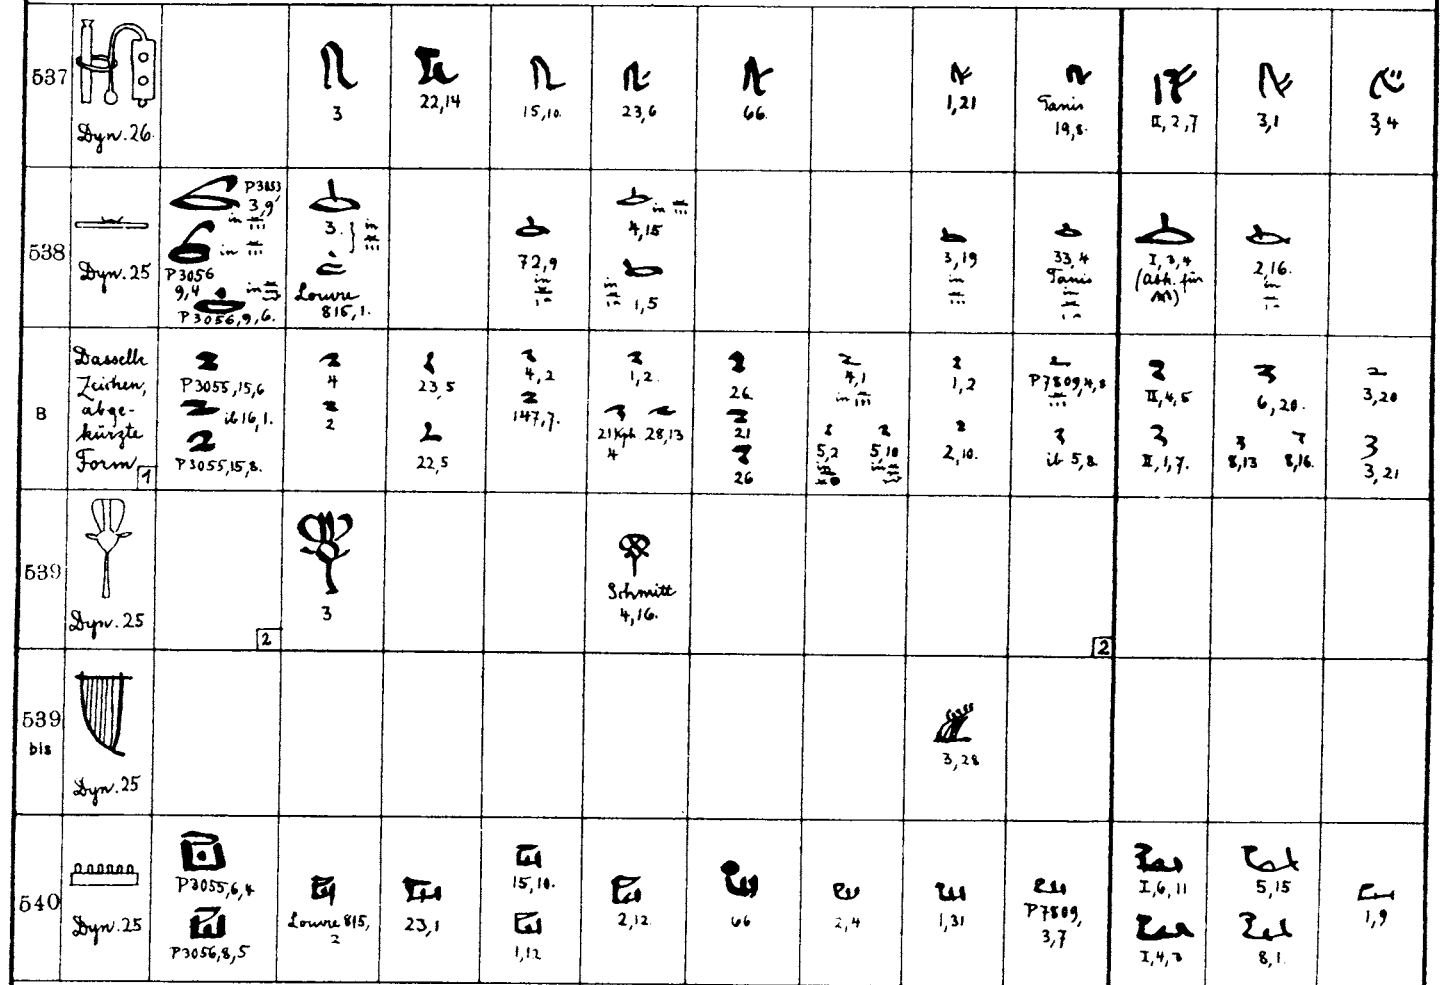 537
Dyn. 26.
3
22,14
15,10.
23,6
66.
1,21
Tanis
19,8.
II, 2,7
3,1
3,4
538
Dyn. 25
P3053
3,9
in
in
P3056
9,4
in
P3056,9,6.
3. in
Louvre
815,1.
72,9
in
in
4,15
in
1,5
3,19
in
33,4
Tanis
in
I,3,4
2,16.
in
B
Dasselbe
Zeichen,
abge-
kürzte
Form
1
P3055,15,6
ib 16,1.
P3055,15,8.
4
2
23,5
22,5
4,2
147,7.
1,2.
21 Kph 28,13
4
26.
21
26
4,1
in
5,2 5,10
in in
1,2
2,10.
P7809,4,8
ib 5,8.
II,4,5
II,1,7.
6,20.
8,13 8,16.
3,20
3,21
539
Dyn. 25
2
3
Schmitt
4,16.
2
539
bis
Dyn. 25
3,28
540
Dyn. 25
P3055,6,4
P3056,8,5
Louvre 815,
2
23,1
15,10.
1,12
2,12.
66
2,4
1,31
P7809,
3,7
I,6,11
I,4,3
5,15
8,1.
1,9